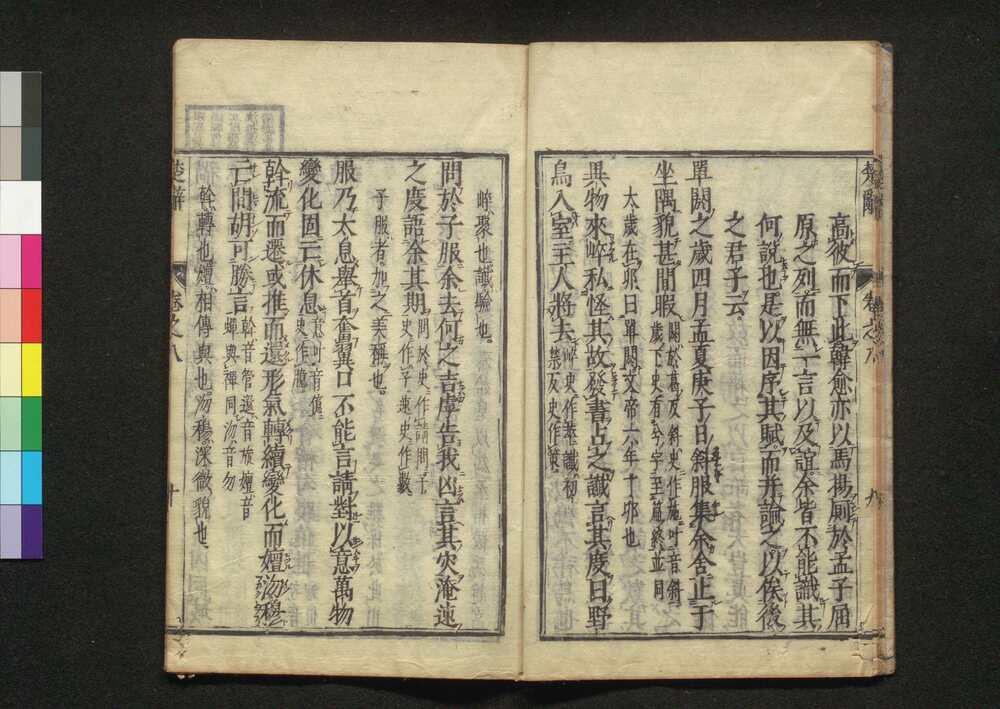 楚辭 卷之八 九
高彼而下此韓愈亦以馬揚厠於孟子屈
原之列而無一言以及誼余皆不能識其
何說也是以因序其賦而幷論之以俟後
之君子云
單閼之歲四月孟夏庚子日斜服集余舍止于
坐隅貌甚閒暇
閼於葛反斜史作施叶音斜
歲下史有兮字至篇終並同
太歲在卯曰單閼文帝六年丁卯也
異物來崪私怪其故發書占之讖言其度曰野
鳥入室主人將去
崪史作集讖初
禁反史作策
崪聚也讖驗也
問於子服余去何之吉虖告我凶言其災淹速
之度語余其期
問於史作請問于
史作予速史作數
子服者加之美稱也
服乃太息舉首奮翼口不能言請對以意萬物
變化固亡休息
意叶音億
史作臆
斡流而遷或推而還形氣轉續變化而嬗沕穆
亡間胡可勝言
斡音管還音旋嬗音
蟬與禪同沕音勿
斡轉也嬗相傳與也沕穆深微貌也
楚辭 卷之八 十